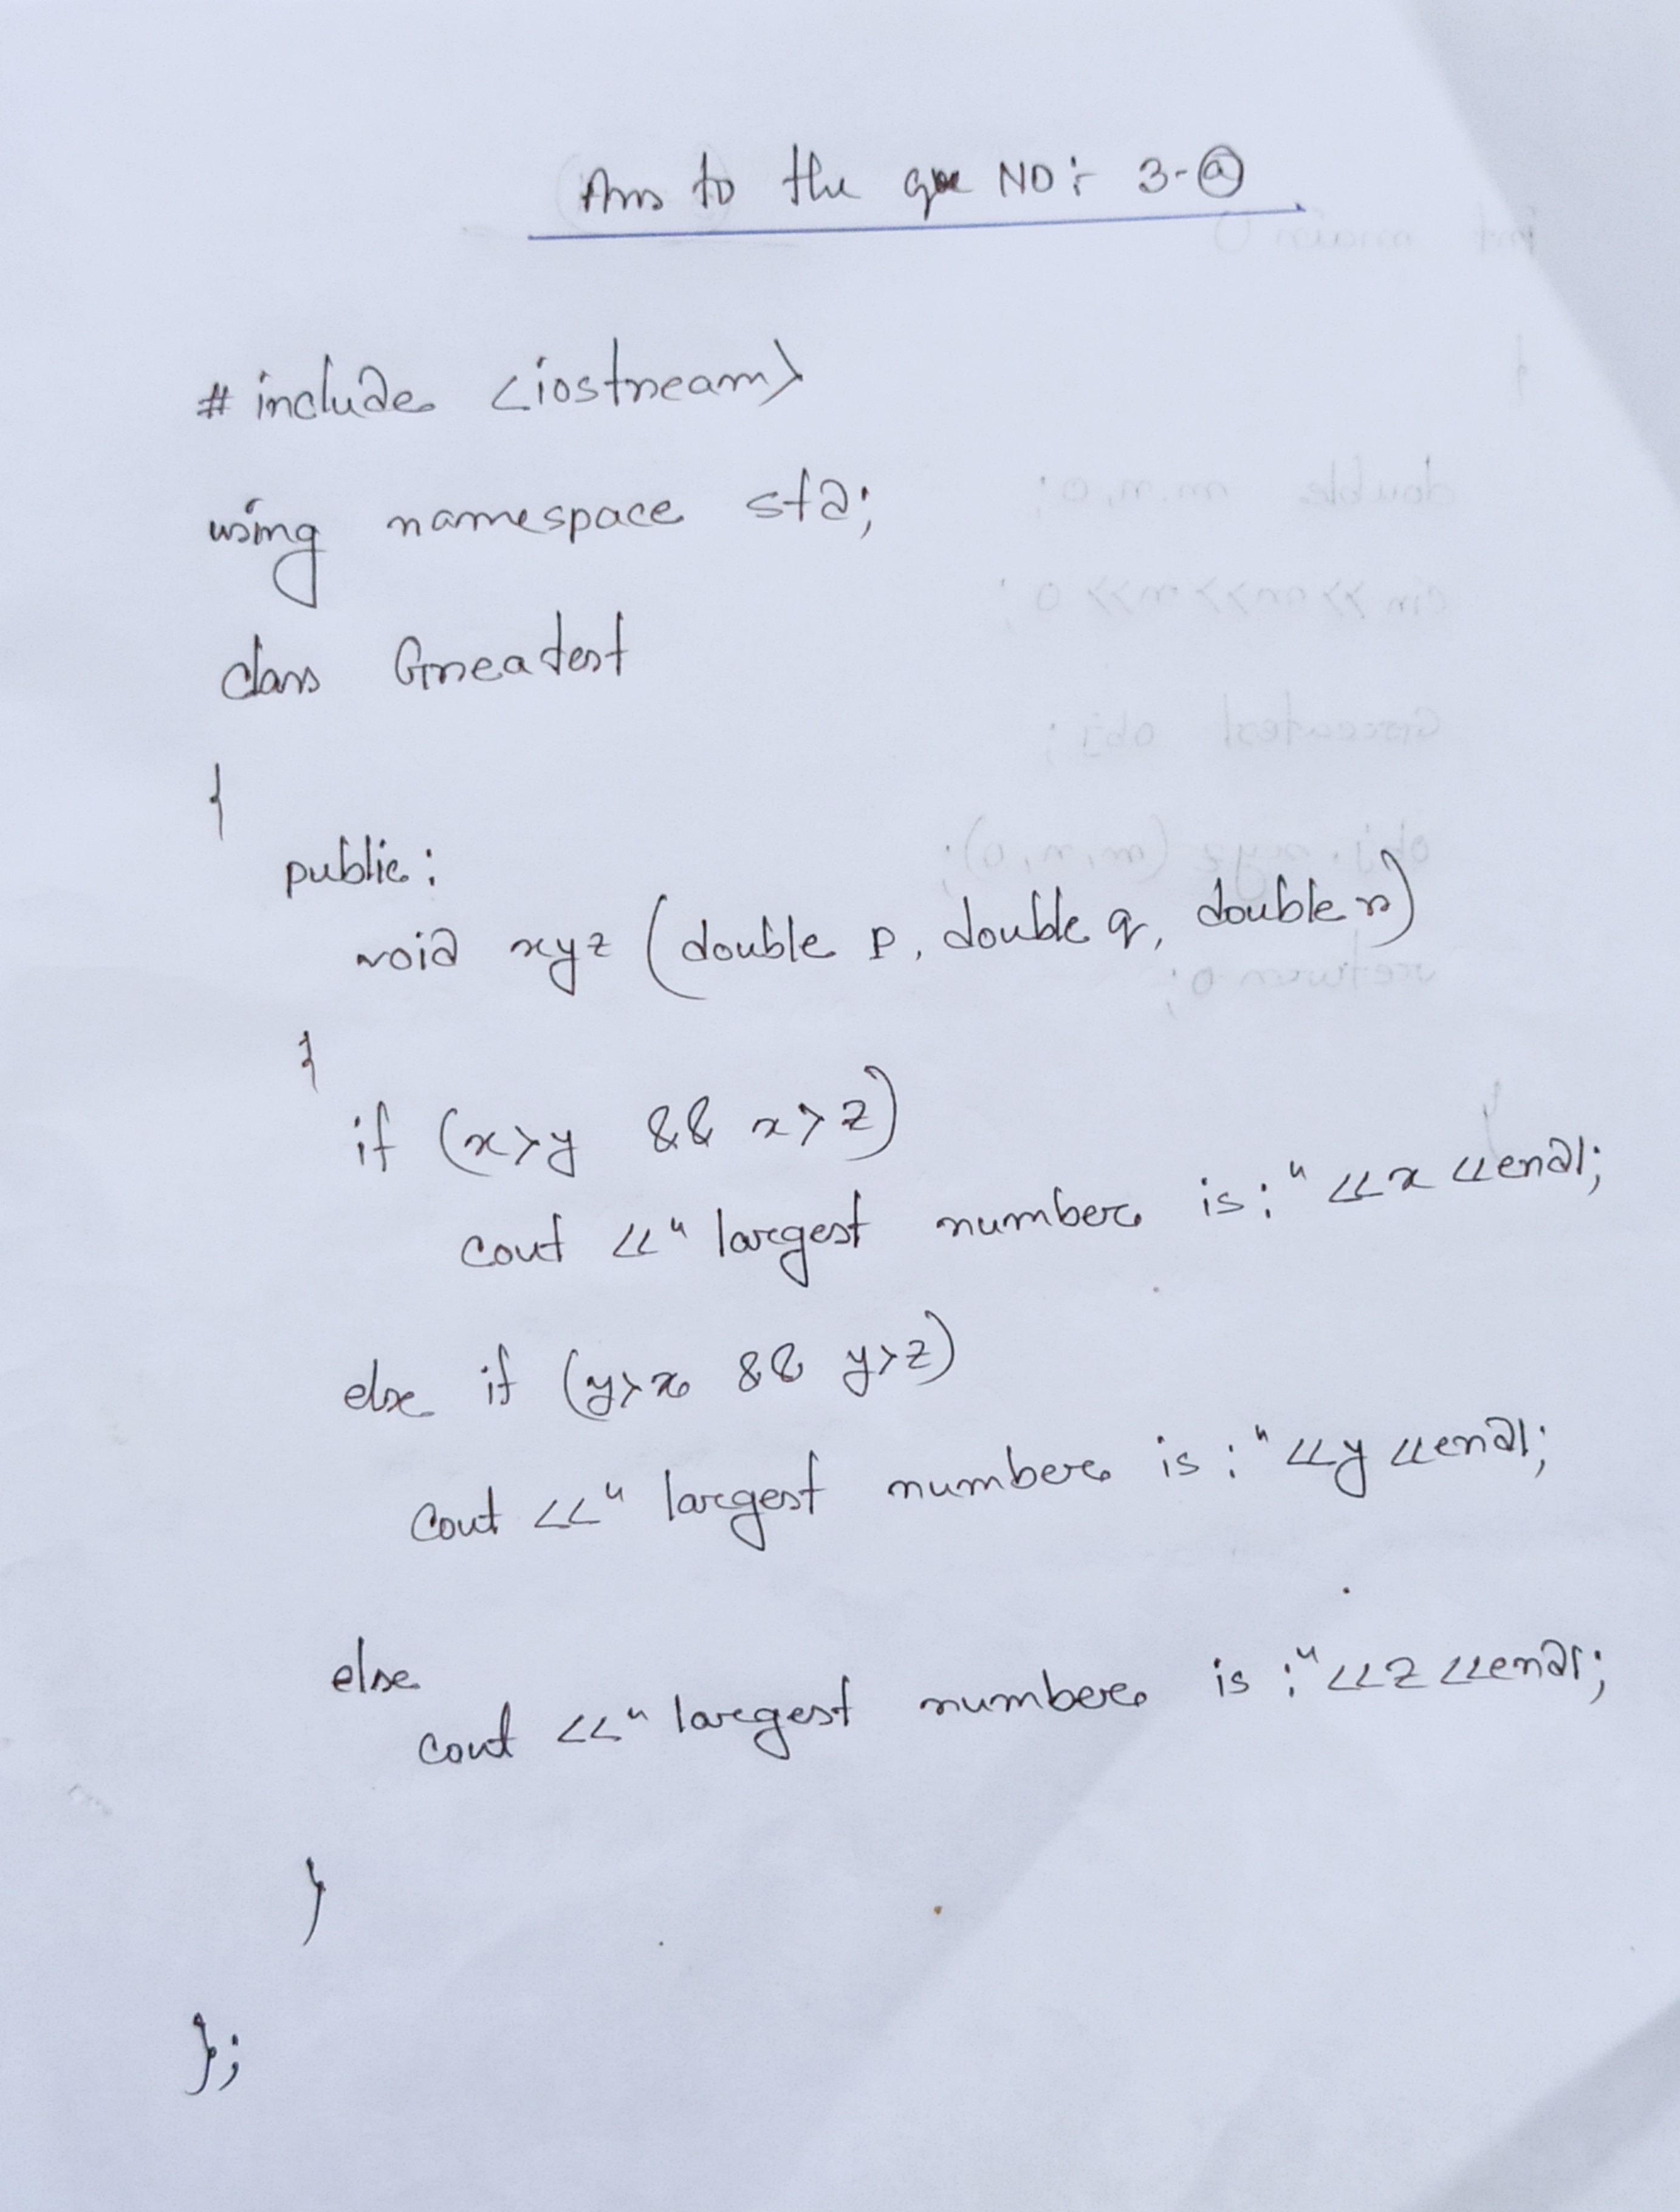 Ans to the que NO:- 3-ⓐ
# include <iostream>
using namespace std;
class Greatest
{
public:
void xyz (double p, double q, double r)
{
if (x>y && x>z)
cout <<" largest number is:" <<x <<endl;
else if (y>x && y>z)
cout <<" largest number is:" <<y <<endl;
else
cout <<" largest number is:" <<z <<endl;
}
};